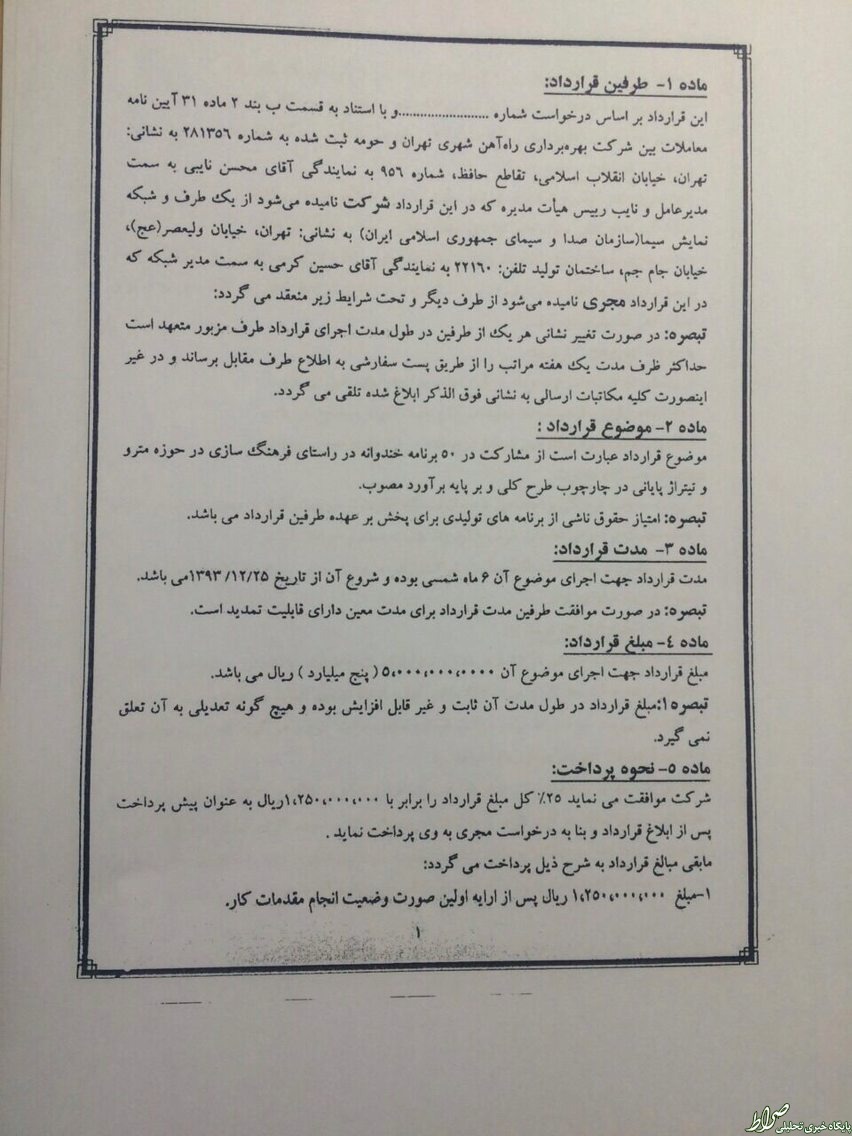 ماده ۱- طرفین قرارداد:
این قرارداد بر اساس درخواست شماره .........................و با استناد به قسمت ب بند ۲ ماده ۳۱ آیین نامه
معاملات بین شرکت بهره‌برداری راه‌آهن شهری تهران و حومه ثبت شده به شماره ۲۸۱۳۵۶ به نشانی:
تهران، خیابان انقلاب اسلامی، تقاطع حافظ، شماره ۹۵۶ به نمایندگی آقای محسن نایبی به سمت
مدیرعامل و نایب رییس هیأت مدیره که در این قرارداد شرکت نامیده می‌شود از یک طرف و شبکه
نمایش سیما(سازمان صدا و سیمای جمهوری اسلامی ایران) به نشانی: تهران، خیابان ولیعصر(عج)،
خیابان جام جم، ساختمان تولید تلفن: ۲۲۱۶۰ به نمایندگی آقای حسین کرمی به سمت مدیر شبکه که
در این قرارداد مجری نامیده می‌شود از طرف دیگر و تحت شرایط زیر منعقد می گردد:
تبصره: در صورت تغییر نشانی هر یک از طرفین در طول مدت اجرای قرارداد طرف مزبور متعهد است
حداکثر ظرف مدت یک هفته مراتب را از طریق پست سفارشی به اطلاع طرف مقابل برساند و در غیر
اینصورت کلیه مکاتبات ارسالی به نشانی فوق الذکر ابلاغ شده تلقی می گردد.
ماده ۲- موضوع قرارداد :
موضوع قرارداد عبارت است از مشارکت در ۵۰ برنامه خندوانه در راستای فرهنگ سازی در حوزه مترو
و تیتراژ پایانی در چارچوب طرح کلی و بر پایه برآورد مصوب.
تبصره: امتیاز حقوق ناشی از برنامه های تولیدی برای پخش بر عهده طرفین قرارداد می باشد.
ماده ۳- مدت قرارداد:
مدت قرارداد جهت اجرای موضوع آن ۶ ماه شمسی بوده و شروع آن از تاریخ ۱۳۹۳/۱۲/۲۵می باشد.
تبصره: در صورت موافقت طرفین مدت قرارداد برای مدت معین دارای قابلیت تمدید است.
ماده ۴- مبلغ قرارداد:
مبلغ قرارداد جهت اجرای موضوع آن ۵،۰۰۰،۰۰۰،۰۰۰۰ ( پنج میلیارد ) ریال می باشد.
تبصره۱:مبلغ قرارداد در طول مدت آن ثابت و غیر قابل افزایش بوده و هیچ گونه تعدیلی به آن تعلق
نمی گیرد.
ماده ۵- نحوه پرداخت:
شرکت موافقت می نماید ۲۵٪ کل مبلغ قرارداد را برابر با ۱،۲۵۰،۰۰۰،۰۰۰ریال به عنوان پیش پرداخت
پس از ابلاغ قرارداد و بنا به درخواست مجری به وی پرداخت نماید .
مابقی مبالغ قرارداد به شرح ذیل پرداخت می گردد:
۱-مبلغ ۱،۲۵۰،۰۰۰،۰۰۰ ریال پس از ارایه اولین صورت وضعیت انجام مقدمات کار.
۱
صراط
پایگاه خبری تحلیلی